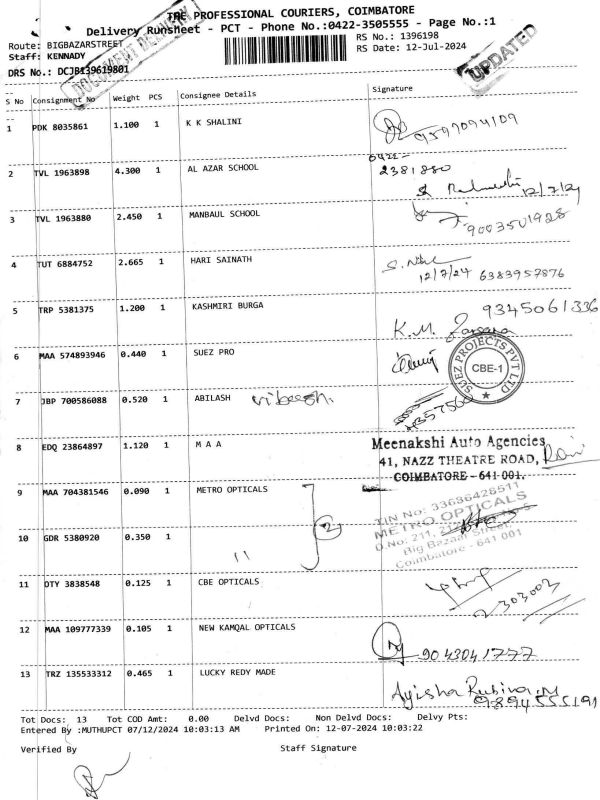 THE PROFESSIONAL COURIERS, COIMBATORE
Delivery Runsheet - PCT - Phone No.:0422-3505555 - Page No.:1
Route: BIGBAZARSTREET
RS No.: 1396198
Staff: KENNADY
RS Date: 12-Jul-2024
DOCUMENT DELIVERY
UPDATED
DRS No.: DCJB139619801
S No Consignment No Weight PCS Consignee Details Signature
1 PDK 8035861 1.100 1 K K SHALINI 9597094109
2 TVL 1963898 4.300 1 AL AZAR SCHOOL 0422-
2381880
12/7/24
3 TVL 1963880 2.450 1 MANBAUL SCHOOL 9003501928
4 TUT 6884752 2.665 1 HARI SAINATH
12/7/24 6383957876
5 TRP 5381375 1.200 1 KASHMIRI BURGA 9345061336
K.M.
6 MAA 574893946 0.440 1 SUEZ PRO
SUEZ PROJECTS PVT LTD
CBE-1
7 JBP 700586088 0.520 1 ABILASH
8 EDQ 23864897 1.120 1 M A A
Meenakshi Auto Agencies
41, NAZZ THEATRE ROAD,
COIMBATORE - 641 001.
9 MAA 704381546 0.090 1 METRO OPTICALS
2
TIN No: 33686428511
METRO OPTICALS
Big Bazaar Street,
Coimbatore - 641 001
10 GDR 5380920 0.350 1 11
11 OTY 3838548 0.125 1 CBE OPTICALS
2303003
12 MAA 109777339 0.105 1 NEW KAMQAL OPTICALS
9043041777
13 TRZ 135533312 0.465 1 LUCKY REDY MADE
Ayisha Rubina.M
9894555191
Tot Docs: 13 Tot COD Amt: 0.00 Delvd Docs: Non Delvd Docs: Delvy Pts:
Entered By :MUTHUPCT 07/12/2024 10:03:13 AM Printed On: 12-07-2024 10:03:22
Verified By Staff Signature